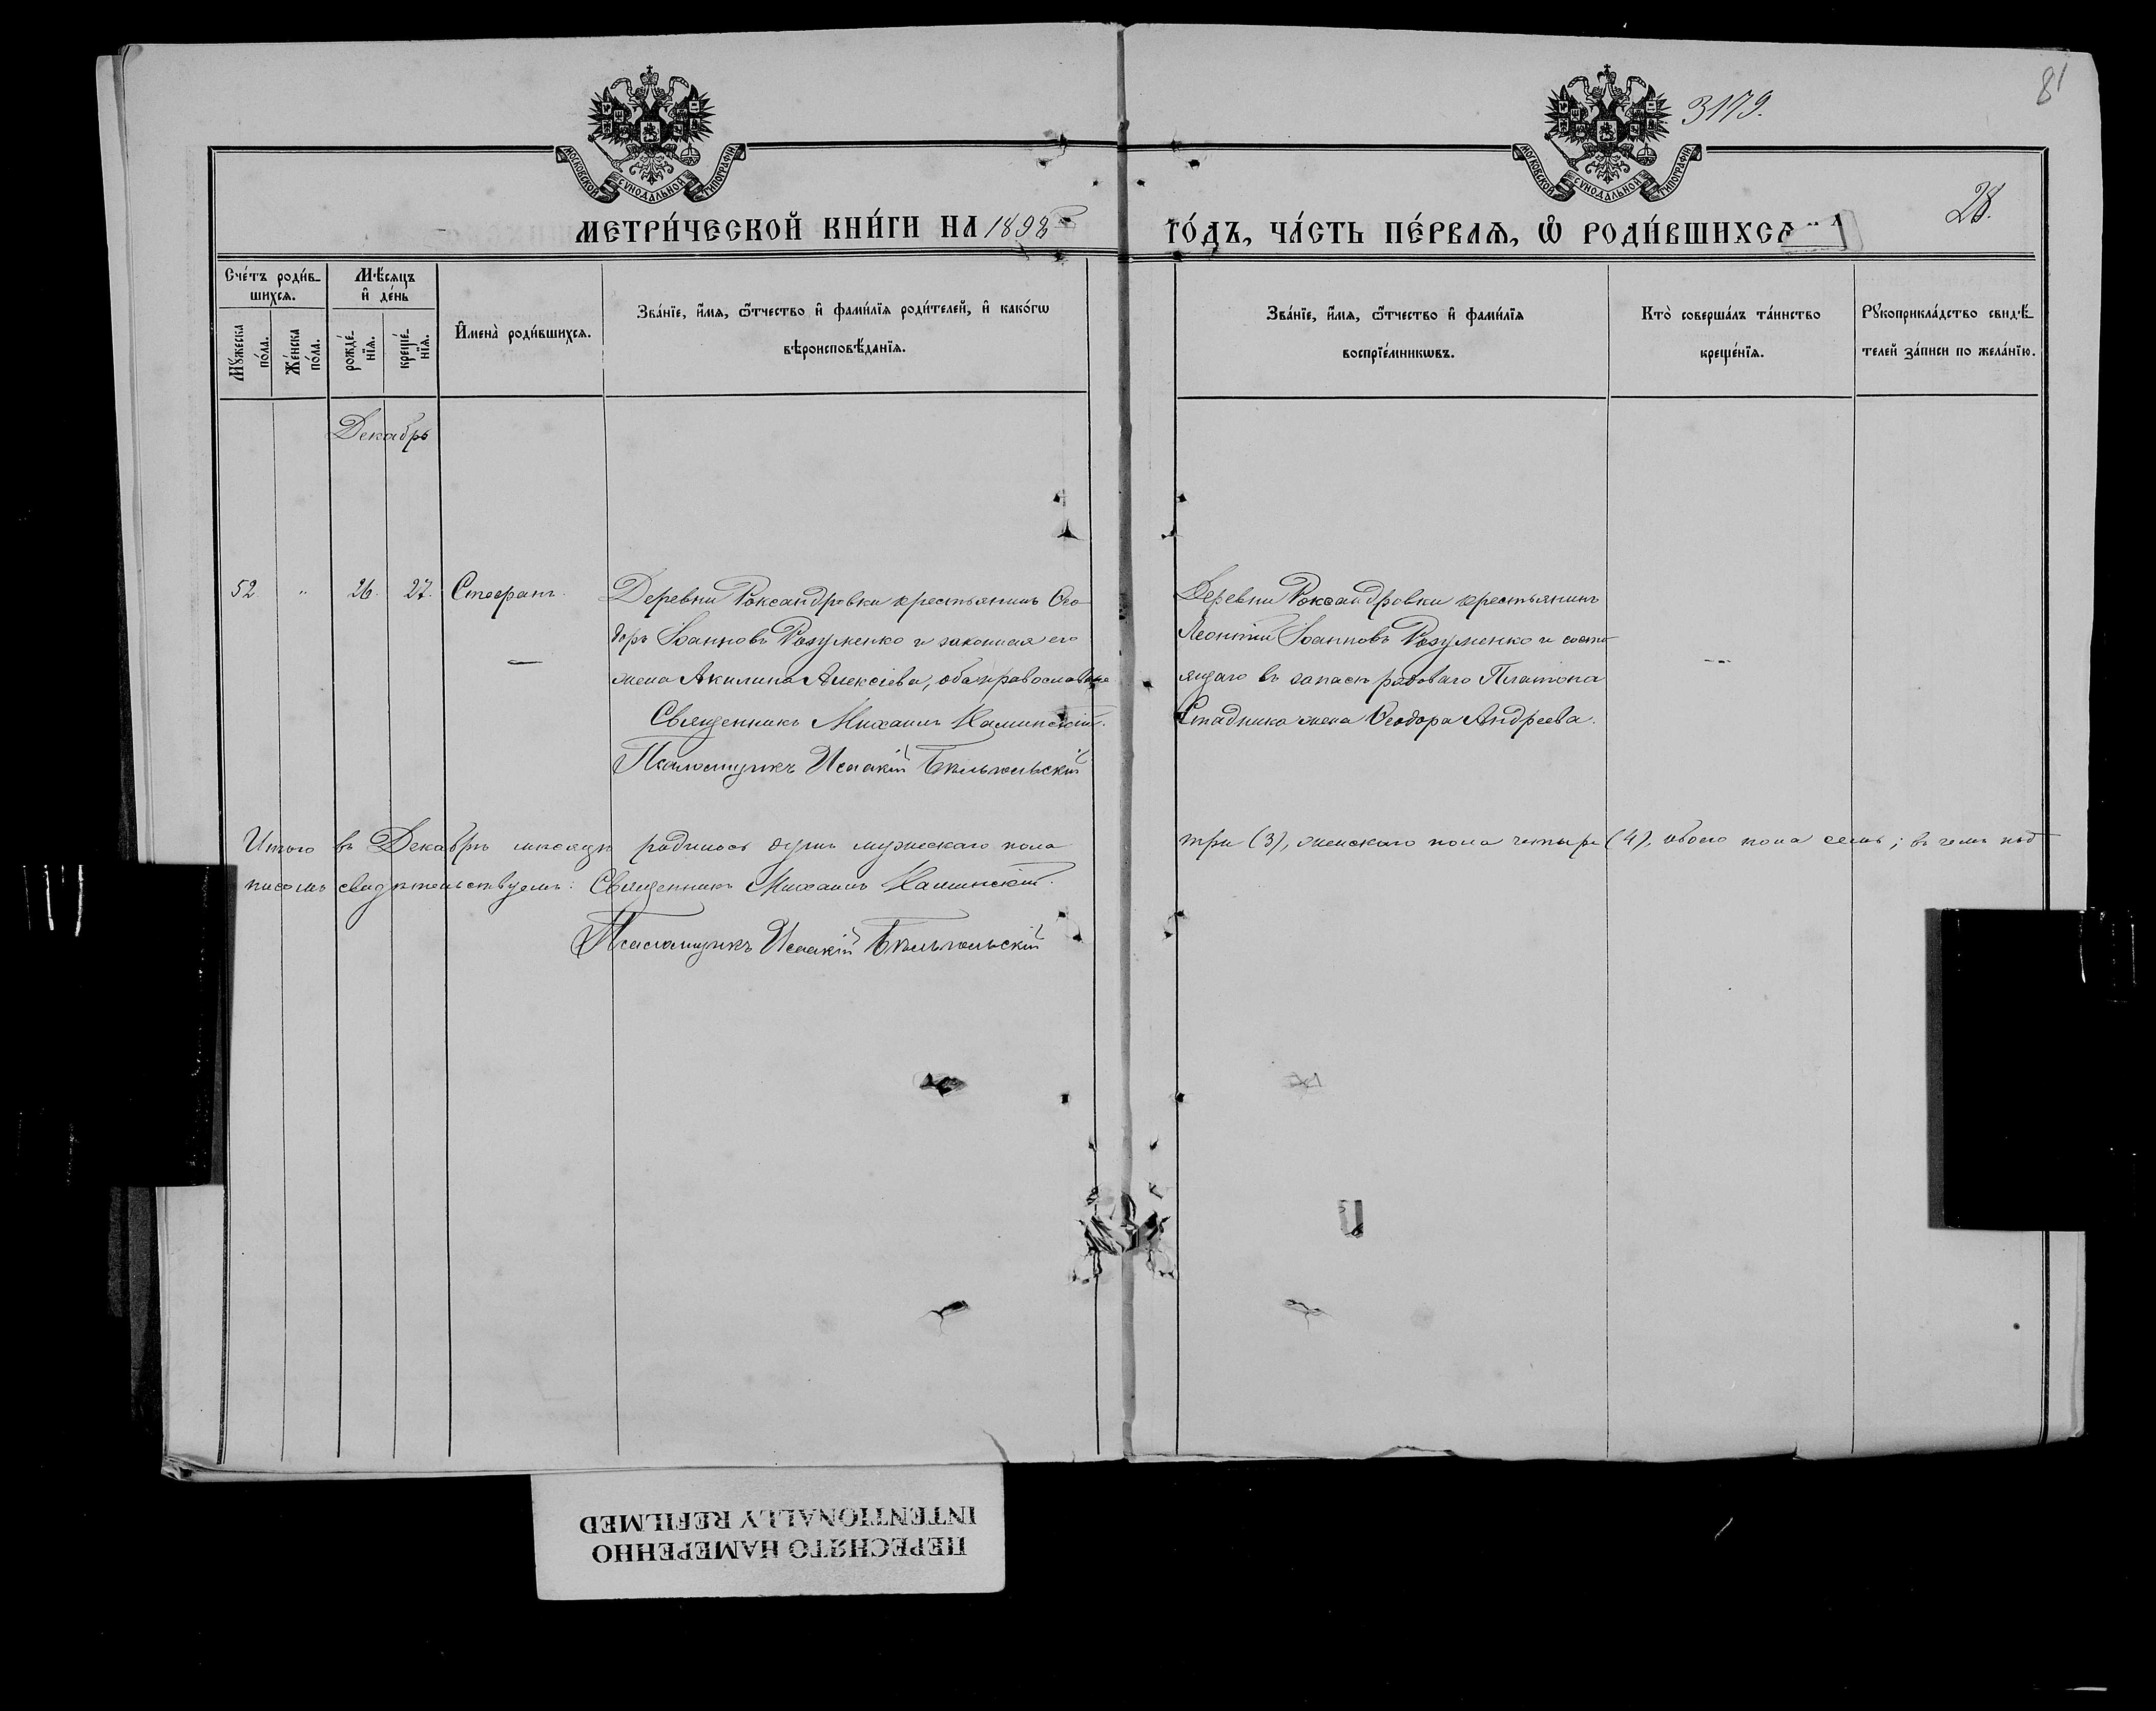 3179.
81
28.
МОСКОВСКОЙ СѴНОДАЛЬНОЙ ТИПОГРАФІИ
МОСКОВСКОЙ СѴНОДАЛЬНОЙ ТИПОГРАФІИ
МЕТРИ́ЧЕСКОЙ КНИ́ГИ НА 1898
ГО́ДЪ, ЧА́СТЬ ПЕ́РВАѦ, Ѽ РОДИ́ВШИХСѦ
Сче́тъ роди́в-
шихсѧ.
Мѣ́сѧцъ
и҆ де́нь
Мꙋ́жеска
по́ла.
Же́нска
по́ла.
рожде́-
нїѧ.
креще́-
нїѧ.
И҆мена̀ роди́вшихсѧ.
Зва́нїе, и҆́мѧ, ѻ҆́тчество и҆ фами́лїѧ роди́телей, и҆ како́гѡ
вѣроисповѣ́данїѧ.
Зва́нїе, и҆́мѧ, ѻ҆́тчество и҆ фами́лїѧ
воспрїе́мникѡвъ.
Кто̀ соверша́лъ та́инство
креще́нїѧ.
Рꙋкоприкла́дство свидѣ́-
телей за́писи по жела́нїю.
Декабрь
52 " 26. 27. Стефанъ.
Деревни Роксандровки крестьянинъ Ѳео-
доръ Іоанновъ Розуменко и законная его
жена Акилина Алексіева, оба православные
Священникъ Михаилъ Калинскій.
Псаломщикъ Исаакій
Деревни Роксандровки крестьянинъ
Леонтій Іоанновъ Розуменко и состо-
ящаго въ запасѣ рядоваго Платона
Стадника жена Ѳеодора Андреева.
Итого въ Декабрѣ мѣсяцѣ родилось душъ мужескаго пола три (3), женскаго пола четыре (4), обоего пола семь; въ чемъ под-
писомъ свидѣтельствуемъ: Священникъ Михаилъ Калинскій.
Псаломщикъ Исаакій
ПЕРЕСНЯТО НАМЕРЕННО
INTENTIONALLY REFILMED